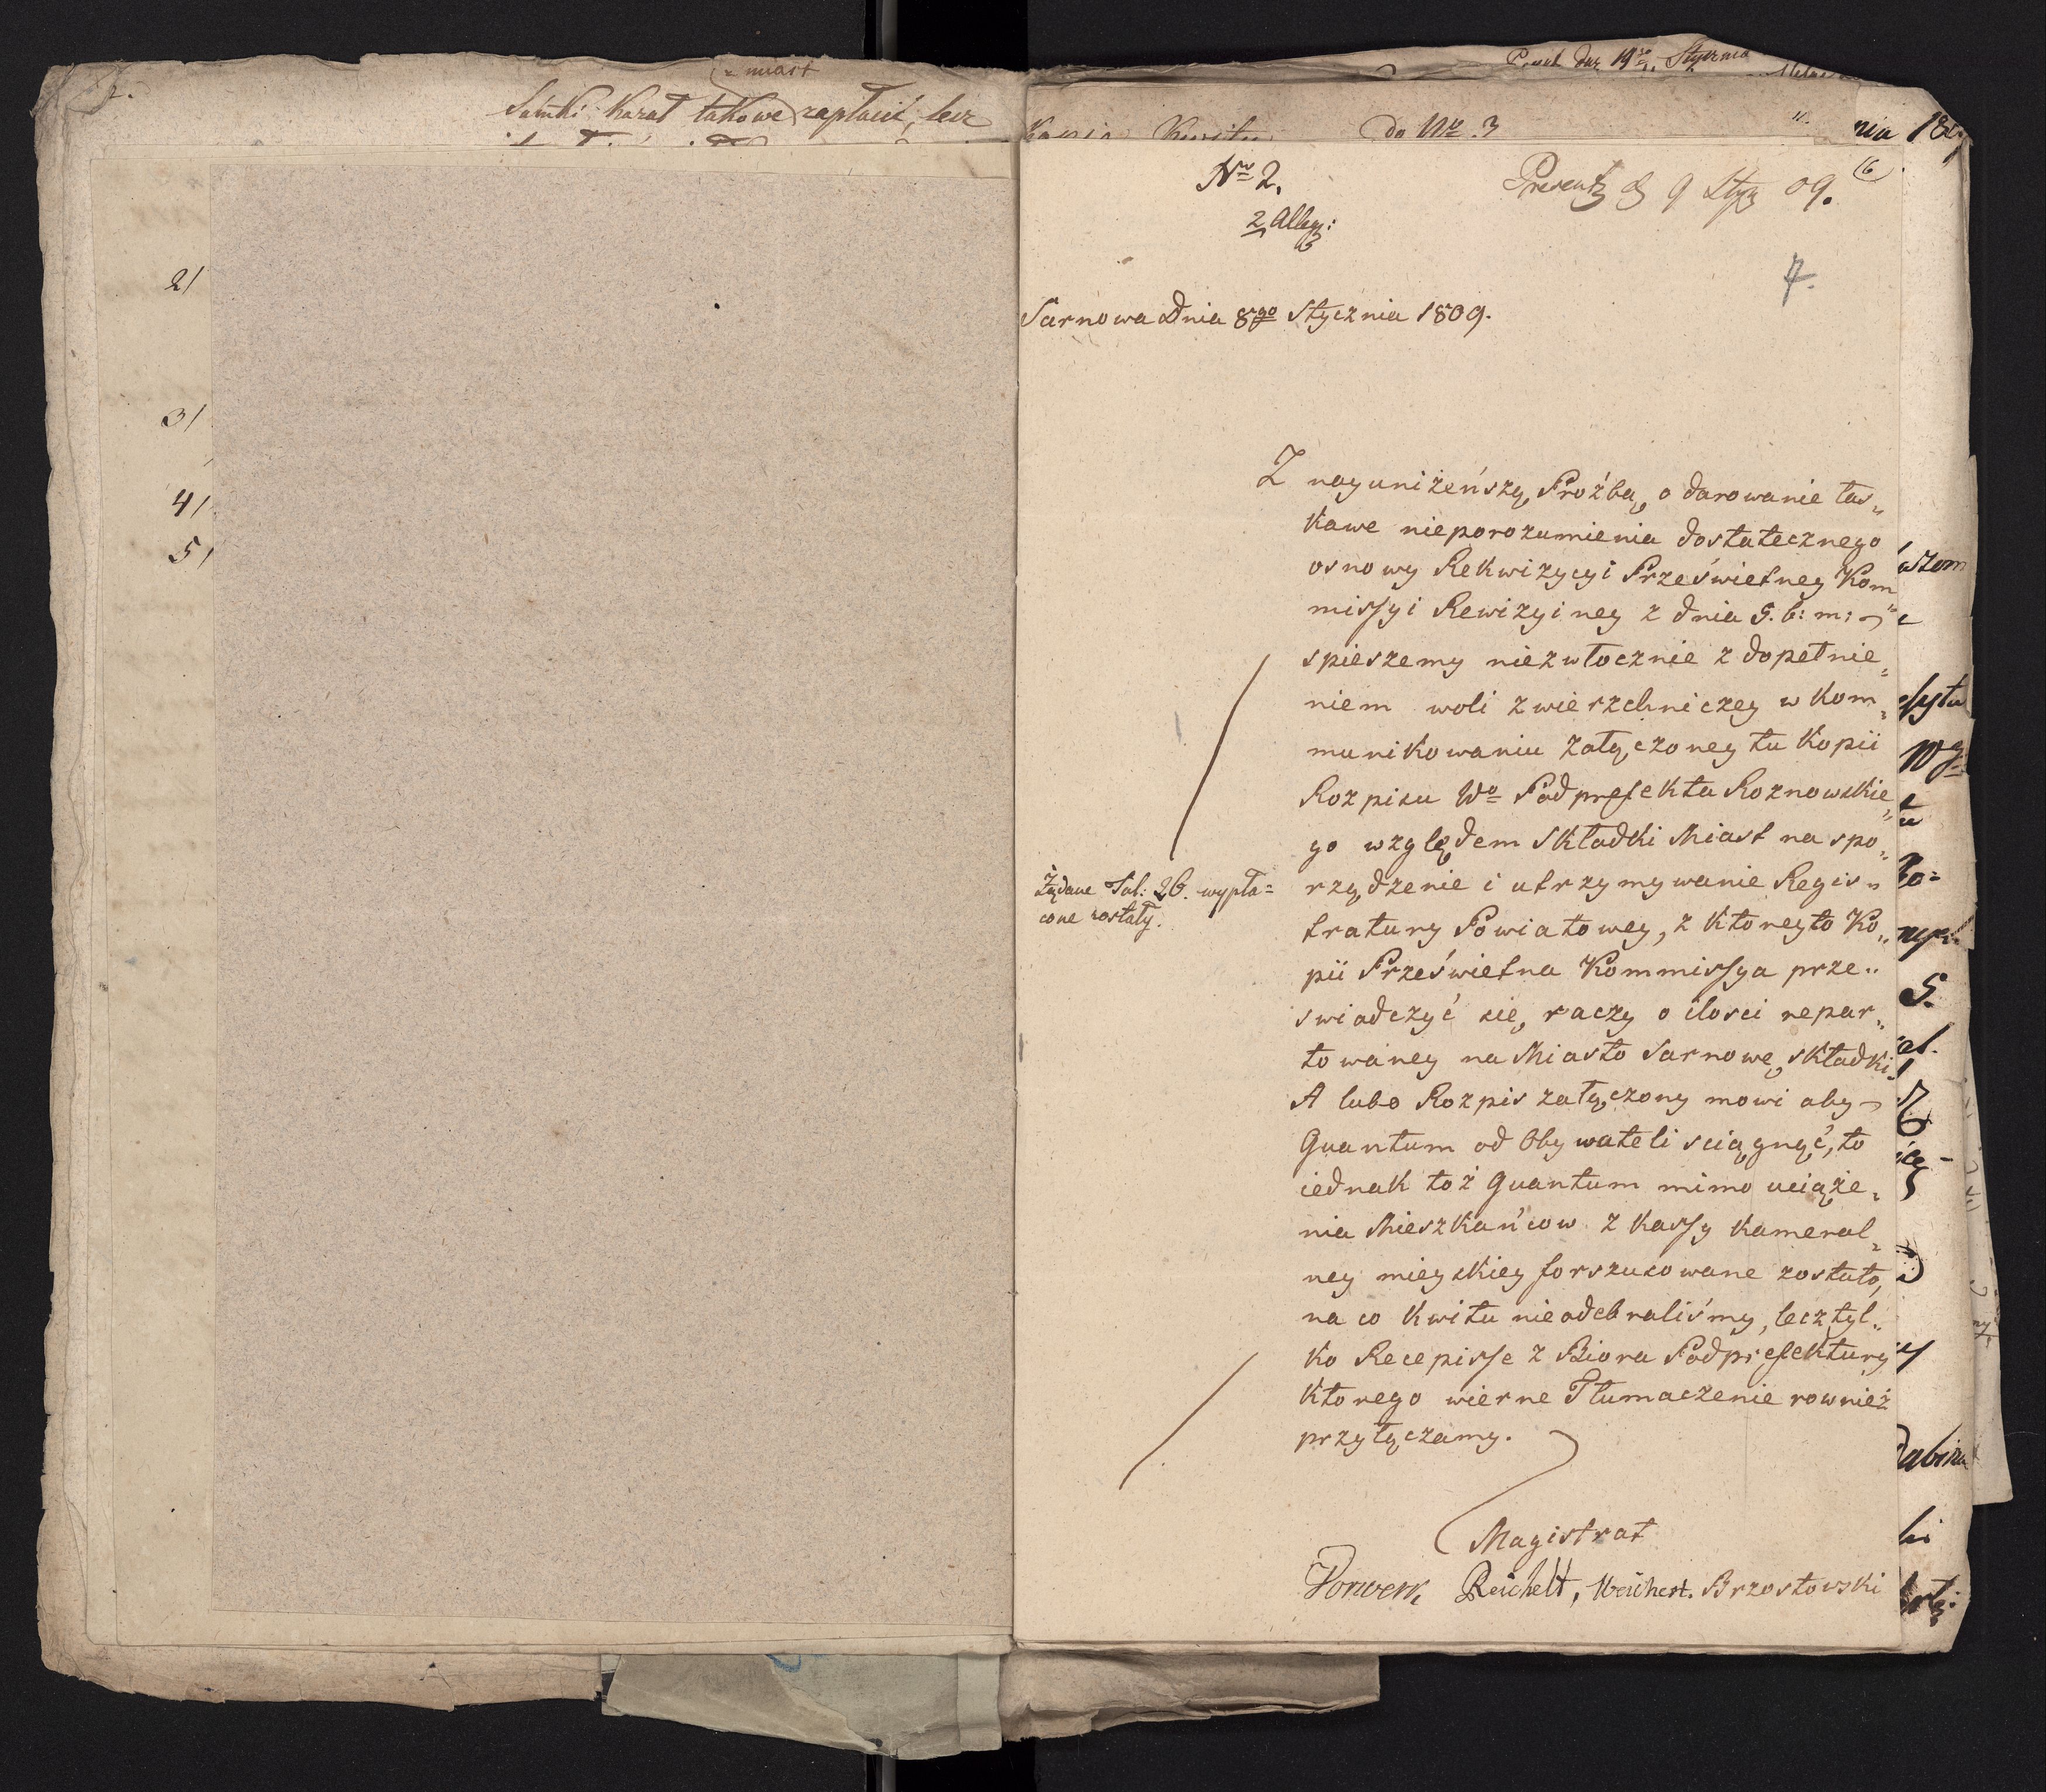 z miast
Satuki kazał takowe zapłacić, lecz
2/
3/
4/
5/
Stycznia
do Nr. 3
nia
Nro 2.
2 Alleg:
Presentz d 9 Stycz 09.
6
7.
Sarnowa Dnia 8go Stycznia 1809.
Z nayuniżeńszą Proźbą, o darowanie łas„
kawe nieporozumienia dostatecznego
osnowy Rekwizycyi Prześwietney Kom„
missyi Rewizyiney z dnia 5. b: m:
spieszemy niezwłocznie z dopełnie„
niem woli zwierzchniczey w kom„
munikowaniu załączoney tu Kopii
Rozpisu Wo Podprefekta Roznowskie„
go względem Składki Miast na spo„
rządzenie i utrzymywanie Regis„
tratury Powiatowey, z ktoreyto Ko„
pii Prześwietna Kommissya prze„
swiadczyć się raczy o ilosci repar„
towaney na Miasto Sarnowę składki.
A lubo Rozpis załączony mowi aby
Quantum od Obywateli sciągnąć, to
iednak toż Quantum mimo uciąże„
nia Mieszkańcow z Kassy Kameral„
ney mieyskiey forszusowane zostało,
na co Kwitu nieodebraliśmy, lecz tyl„
ko Recepisse z Biora Podprefektury
ktorego wierne Tłumaczenie rownież
przyłączamy.
Żądane Tal: 26. wypła=
cone zostały.
Magistrat
Vorwerk, Reichelt, Weichert. Brzostowski